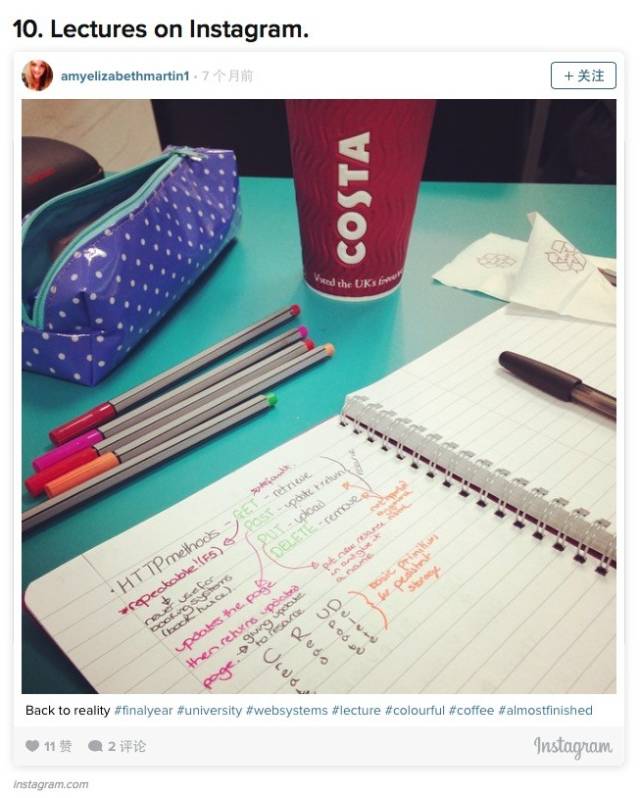 10. Lectures on Instagram.
amyelizabethmartin1 • 7 个月前
+ 关注
COSTA
Voted the UK's
HTTP methods
GET - retrieve
POST - update & return
PUT - upload
DELETE - remove
put new resource
in and give it
a name
basic primitives
for persistent
storage
repeatable! (F5)
never use for
booking systems
(book twice)
updates the page
then returns updated
page.
giving update
to resource
Create
Read
Update
Delete
Back to reality #finalyear #university #websystems #lecture #colourful #coffee #almostfinished
11 赞
2 评论
Instagram
instagram.com